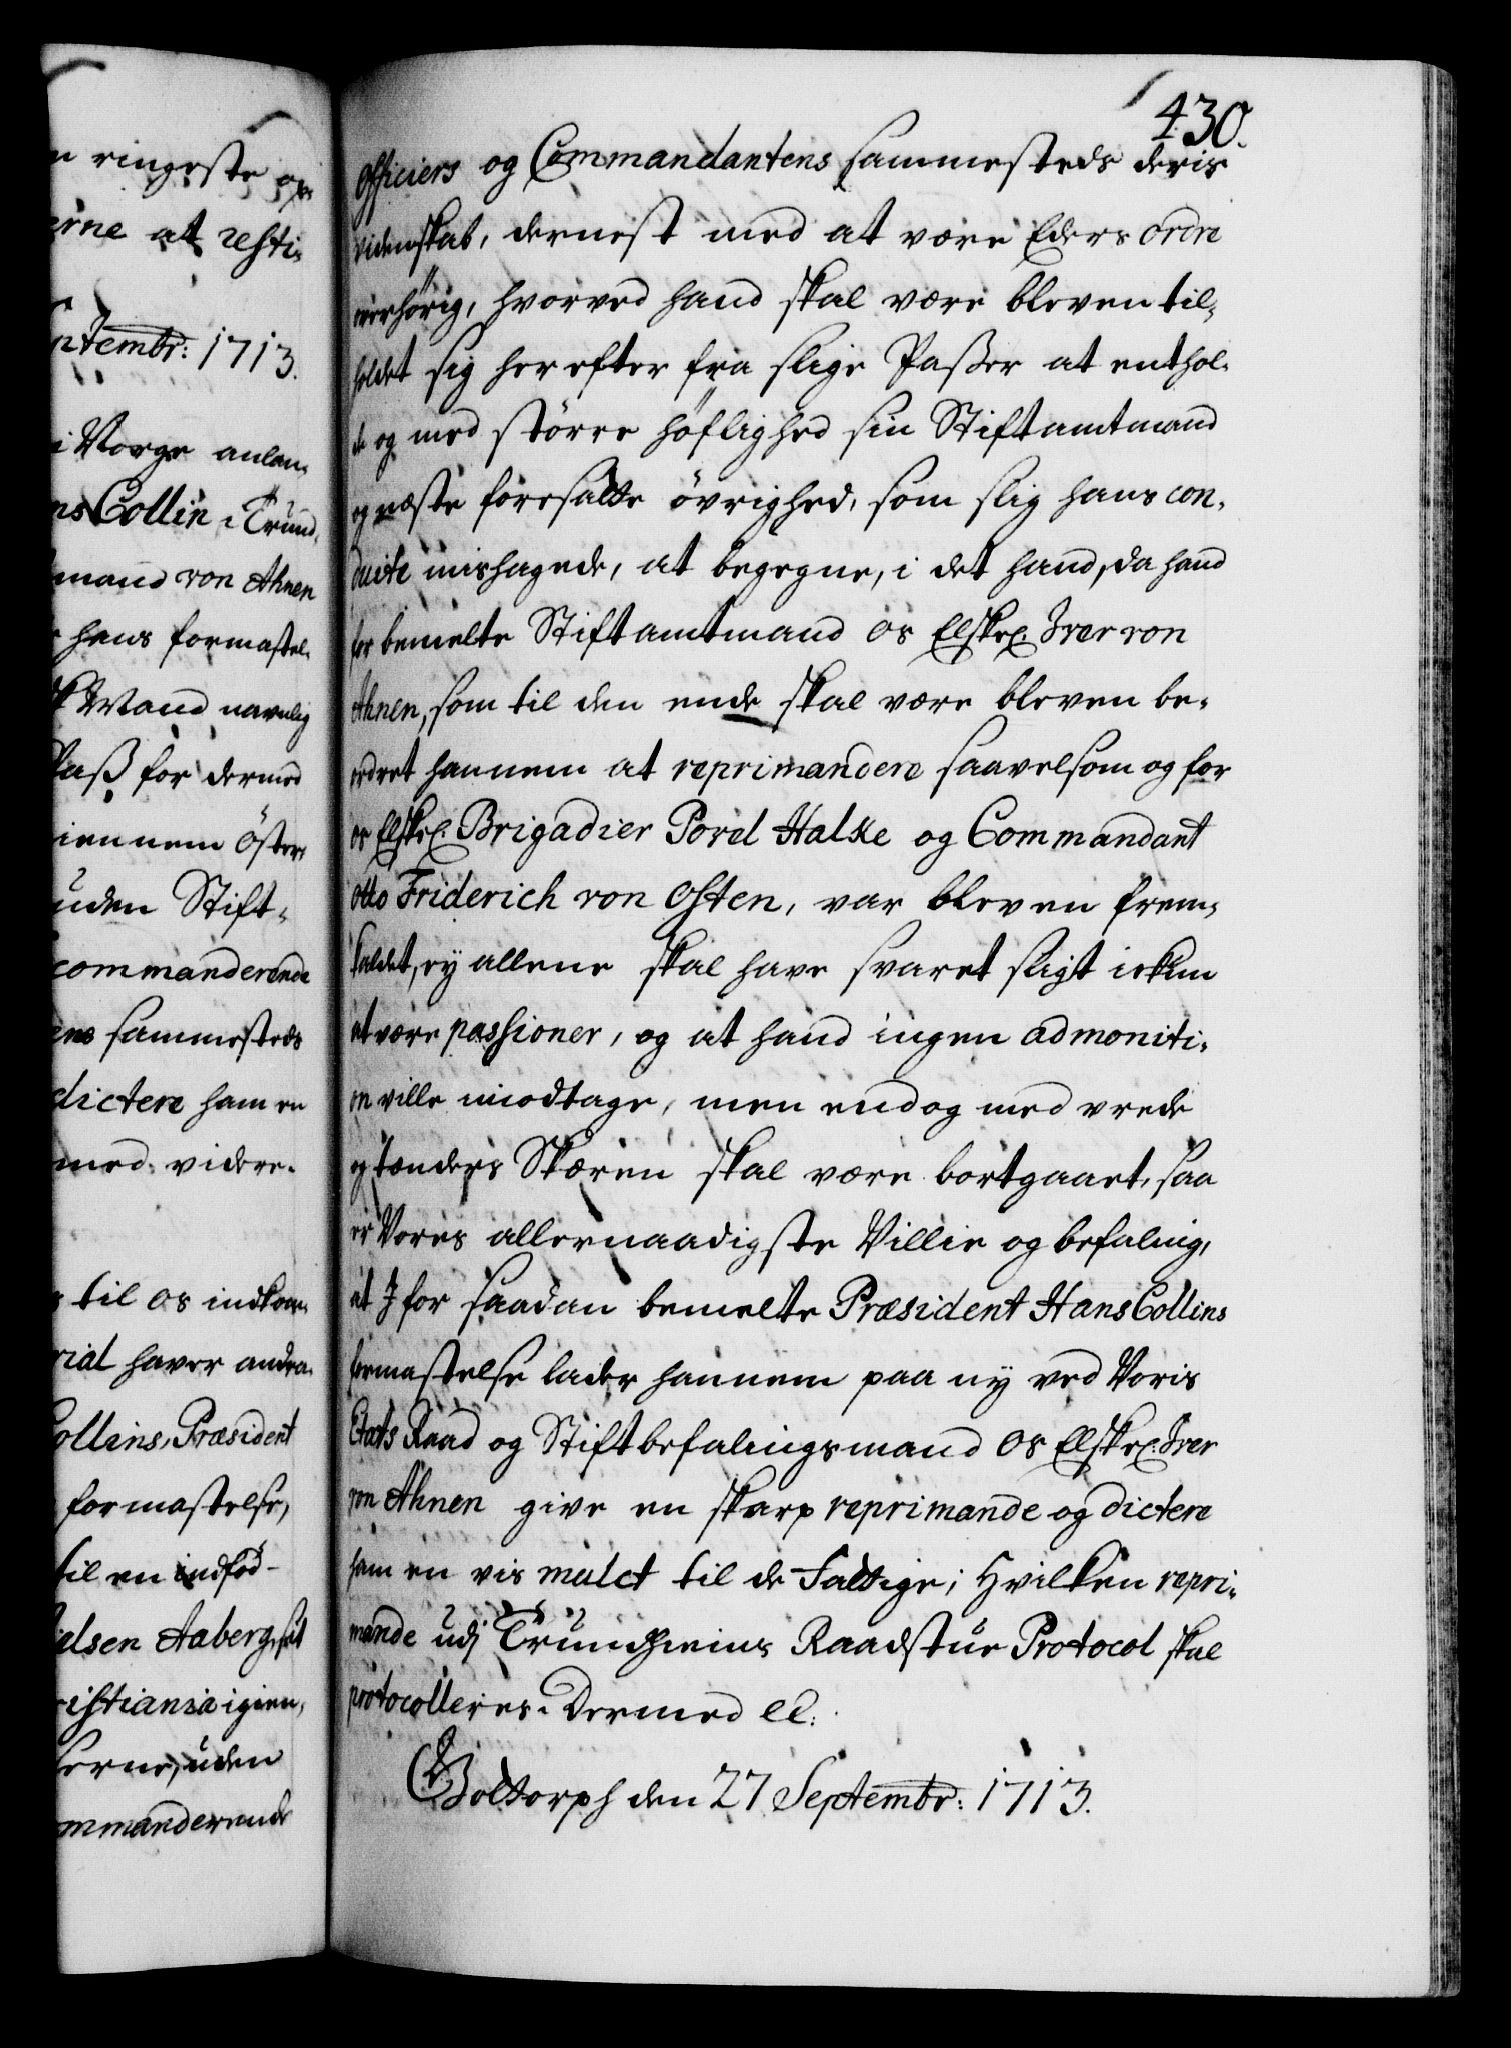 n ringeste op
erne at resti¬
ptembr: 1713.
i Norge anlan¬
ns Collin i Trund¬
mand von Ahnen
hans formastel¬
Mand navnlig
Pass for dermed
iennem Öster¬
uden Stift¬
commanderende
ens sammesteds
dictere ham en
med videre.
til os indkom¬
rial haver andra¬
Collins, Præsident
formastelse,
til en indfød¬
ielsen Aaberg, sit
ristiania igien,
serne, uden
mmanderende
430.
Officiers og Commandantens sammesteds deris
videnskab, dernest med at være Eders ordre
overhörig, hvorved hand skal være bleven til¬
holdet sig herefter fra slige Passer at enthol¬
de og med större höflighed sin Stiftamtmand
og næste foresatte övrighed, som slig hans con¬
duite mishagede, at begegne, i det hand, da hand
for bemelte Stiftamtmand os Elskel. Iver von
Ahnen, som til den ende skal være bleven be¬
ordret hannem at reprimandere saavelsom og for
os Elskel. Brigadier Povel Halke og Commandant
Otto Friderich von Osten, var bleven frem¬
kaldet, ey allene skal have svaret sligt ickun
at være passioner, og at hand ingen admoniti¬
on ville modtage, men endog med vrede
og tænders Skæren skal være bortgaaet, saa
er Vores allernaadigste Villie og befaling,
at I for saadan bemelte Præsident Hans Collins
formastelse lader hannem paa ny ved Voris
Etats Raad og Stiftbefalingsmand os Elskel. Iver
von Ahnen give en skarp reprimande og dictere
ham en vis mulct til de Fattige; Hvilken repri¬
mande udj Trundhiems Raadstue Protocol skal
protocolleres. Dermed etc:
Gottorph den 27 Septembr: 1713.